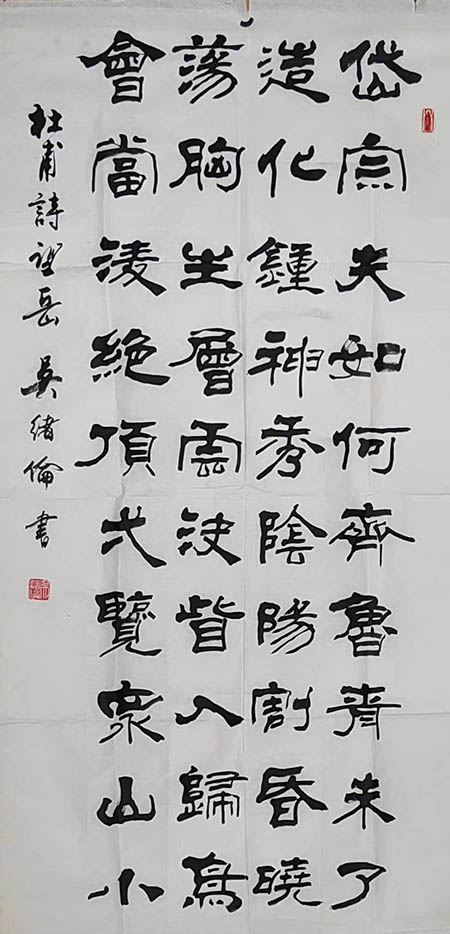 岱宗夫如何齊魯青未了
造化鍾神秀陰陽割昏曉
蕩胸生層雲決眥入歸鳥
會當淩絶頂弌覽衆山小
杜甫詩望岳 吳緒倫書